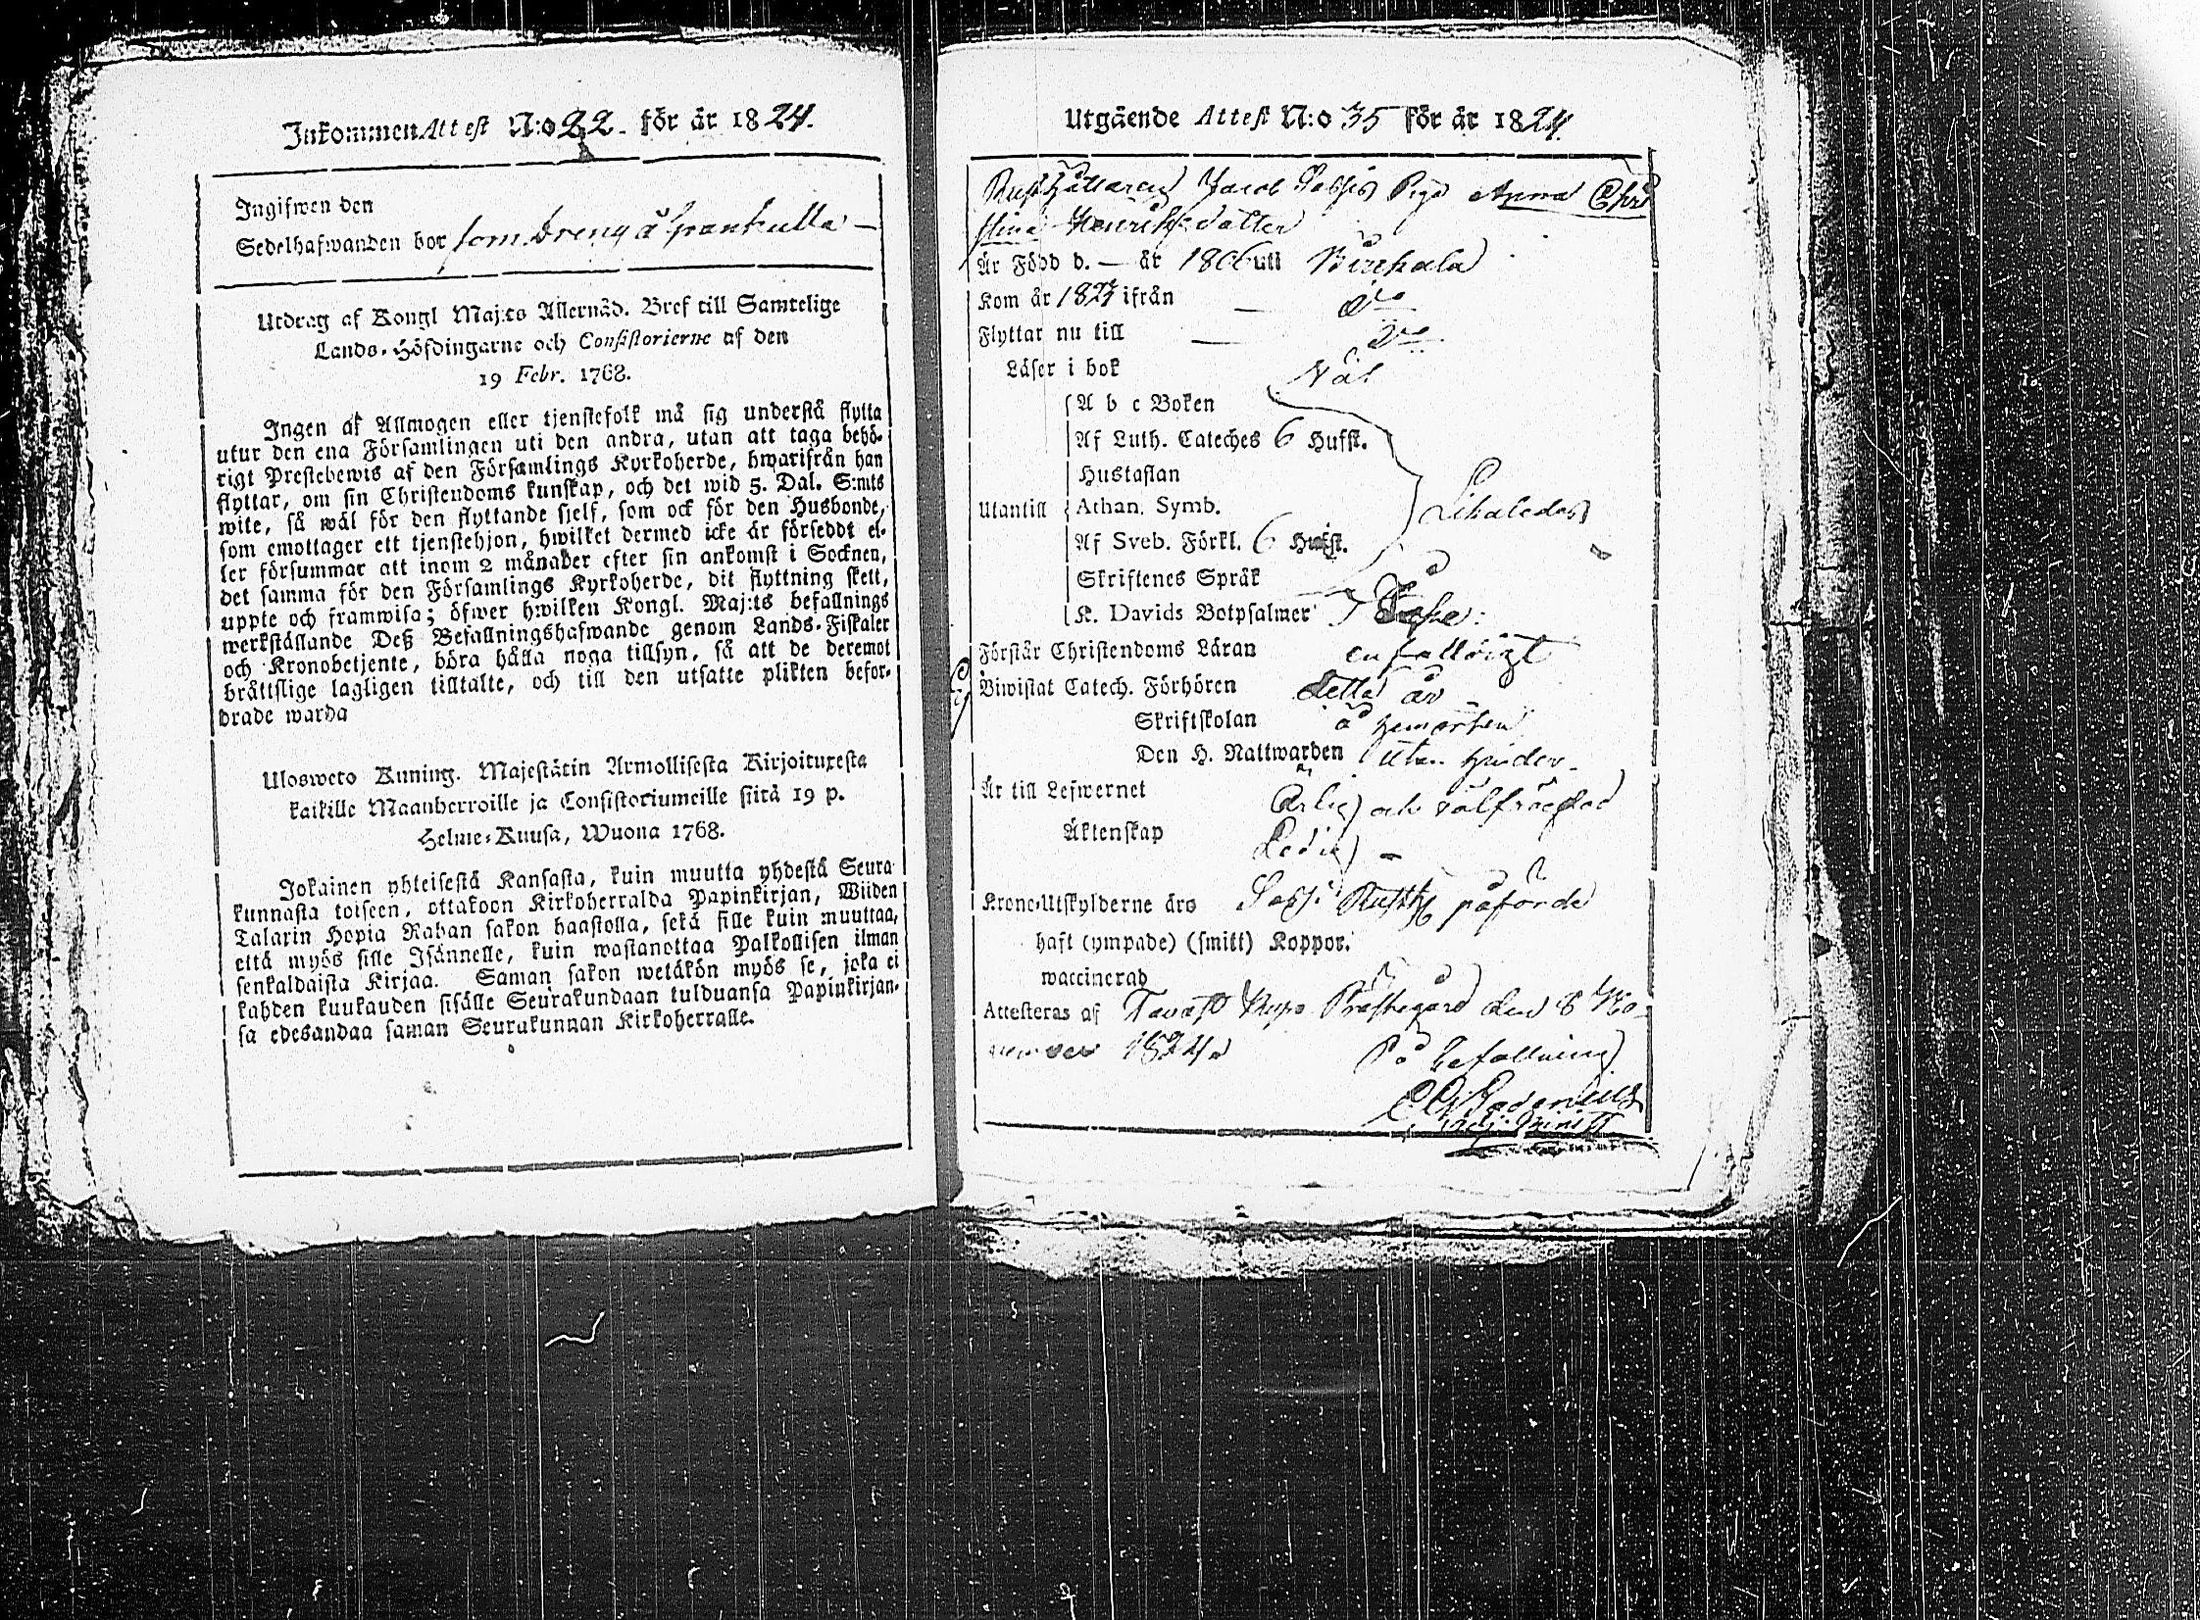 Inkommen Attest N:o 22. för år 1824.
Ingifwen den
Sedelhafwanden bor som Dreng å Spankulla
Utdrag af Kongl Maj:ts Allernåd. Bref till Samtelige
Lands-Höfdingarne och Consistorierne af den
19 Febr. 1768.
Ingen af Allmogen eller tjenstefolk må sig understå flytta
utur den ena Församlingen uti den andra, utan att taga behö-
rigt Prestebewis af den Församlings Kyrkoherde, hwarifrån han
flyttar, om sin Christendoms kunskap, och det wid 5. Dal. S:mts
wite, så wäl för den flyttande sjelf, som ock för den Husbonde,
som emottager ett tjenstehjon, hwilket dermed icke är förseddt el-
ler försummar att inom 2 månader efter sin ankomst i Socknen,
det samma för den Församlings Kyrkoherde, dit flyttning skett,
uppte och framwisa; öfwer hwilken Kongl. Maj:ts befallnings
werkställande Deß Befallningshafwande genom Lands-Fiskaler
och Kronobetjente, böra hålla noga tillsyn, så att de deremot
bråttslige lagligen tilltalte, och till den utsatte plikten befor-
drade warda
Ulosweto Kuning. Majestätin Armollisesta Kirjoituxesta
kaikille Maanherroille ja Consistoriumeille siitä 19 p.
Helme-Kuusa, Wuona 1768.
Jokainen yhteisestä Kansasta, kuin muutta yhdestä Seura
kunnasta toiseen, ottakoon Kirkoherralda Papinkirjan, Wiiden
Talarin Hopia Rahan sakon haastolla, sekä sille kuin muuttaa,
että myös sille Isännelle, kuin wastanottaa Palkollisen ilman
senkaldaista Kirjaa. Saman sakon wetäkön myös se, joka ei
kahden kuukauden sisälle Seurakundaan tulduansa Papinkirjan-
sa edesandaa saman Seurakunnan Kirkoherralle.
Utgående Attest N:o 35 för år 1824.
Rusthållaren Jacob Sassis Piga Anna Chri
stina Henriksdotter
Är Född d. — år 1806 uti Birkala
Kom år 1823 ifrån — d:o
Flyttar nu till — D:o
Läser i bok Wäl
A b c Boken
Af Luth. Cateches 6 Hufst.
Hustaflan
Utantill Athan. Symb. Likaledes
Af Sveb. Förkl. 6 Hufst.
Skriftenes Språk
K. Davids Botpsalmer
Förstår Christendoms Läran enfalldigt
Biwistat Catech. Förhören detta år
Skriftskolan å hemorten
Den H. Nattwarden utan hinder
Är till Lefwernet Ärlig och välfrägdad
Äktenskap Ledig —
Krono-Utskylderne äro Sassi Rusth påförde
haft (ympade) (smitt) Koppor.
waccinerad
Attesteras af Tavast Kyro Prästegård den 8 No-
vember 1824
På befallning